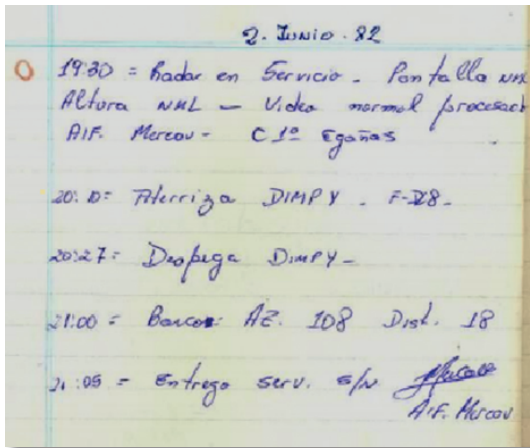 2. Junio. 82
19:30 = Radar en Servicio - Pantalla NML
Altura NML - Video normal procesad
A/F. Mercau - C 1º Egañas
20:10 = Aterriza DIMPY - F-28 -
20:27 = Despega DIMPY -
21:00 = Barcos AZ. 108 Dist. 18
21:05 = Entrego serv. s/n
A/F. Mercau